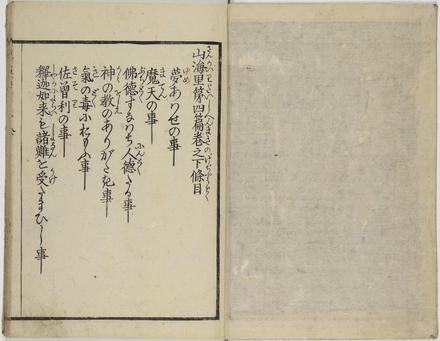 山海里第四篇巻之下條目
夢あはせの事
魔天の事
佛徳すなはち人徳なる事
神の教のありがたき事
氣の毒におもふ事
佐曽利の事
釋迦如来も諸難を受たまひし事